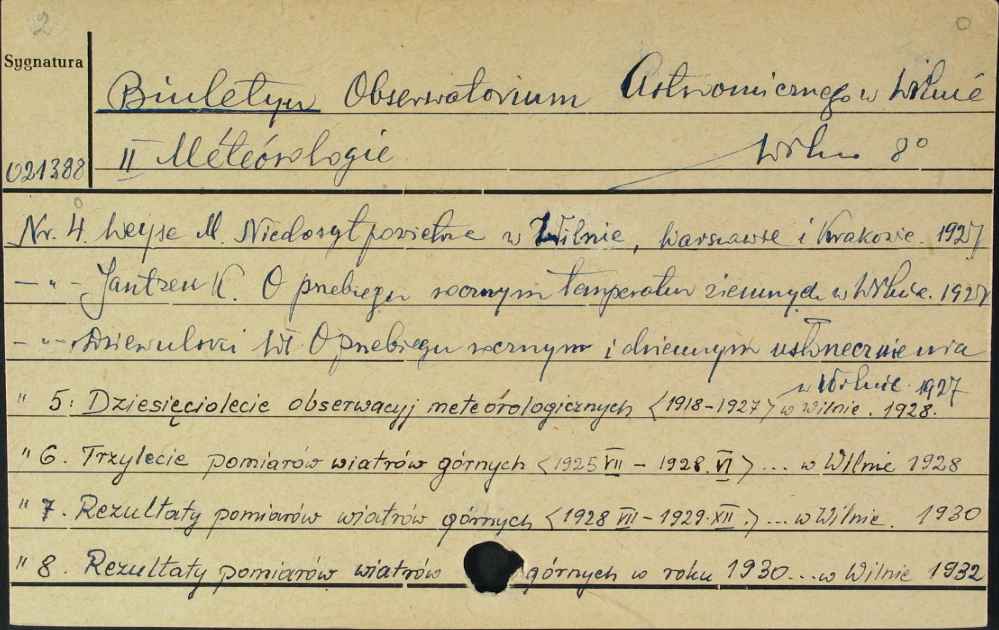 2
0
Sygnatura
Biuletyn Obserwatorium Astronomicznego w Wilnie
021388 II Météórologie Wilno 8°
Nr. 4. Weyse M. Niedosyt powietrza w Wilnie, Warszawie i Krakowie. 1927
— " — Jantzen K. O przebiegu rocznym temperatur ziemnych w Wilnie. 1927
— " — Dziewulski Wł. O przebiegu rocznym i dziennym usłonecznienia
w Wilnie. 1927
" 5: Dziesięciolecie obserwacyj meteórologicznych <1918-1927> w Wilnie. 1928.
" 6. Trzylecie pomiarów wiatrów górnych <1925 VII - 1928. VI> ... w Wilnie 1928
" 7. Rezultaty pomiarów wiatrów górnych <1928 VII - 1929. XII.> ... w Wilnie. 1930
" 8. Rezultaty pomiarów wiatrów górnych w roku 1930 ... w Wilnie 1932